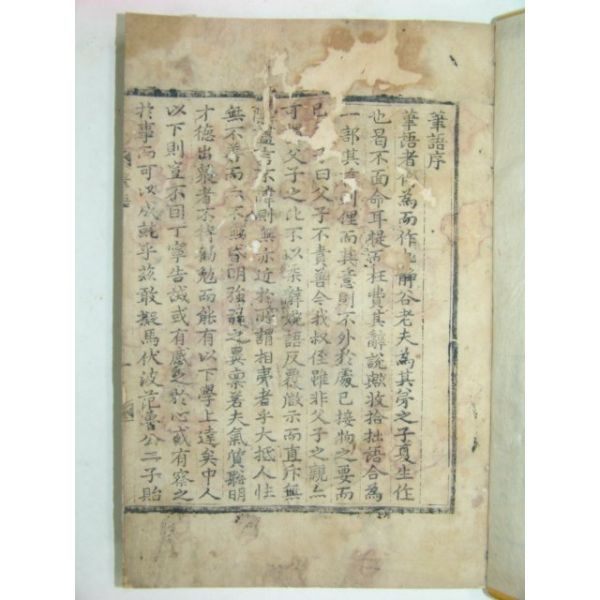 筆語序
筆語者 為而作 靜谷老夫為其勞之子夏生作
也曷不面命耳提而枉費其辭說歟收拾拙語合為
一部其 則俚而其意則不外於處己接物之要而
已 曰父子不責善令我叔侄雖非父子之親亦
可 父子之比不以柔辭婉語反覆微示而直斥無
隱盡言不諱則無亦近於所謂相夷者乎大抵人性
無不善而 不無昏明強弱之異稟若夫氣質聰明
才德出衆者不待勸勉而能有以下學上達矣中人
以下則豈不因丁寧告誡或有感之於心或有察之
於事而可以成就乎玆敢擬馬伏波范魯公二子貽